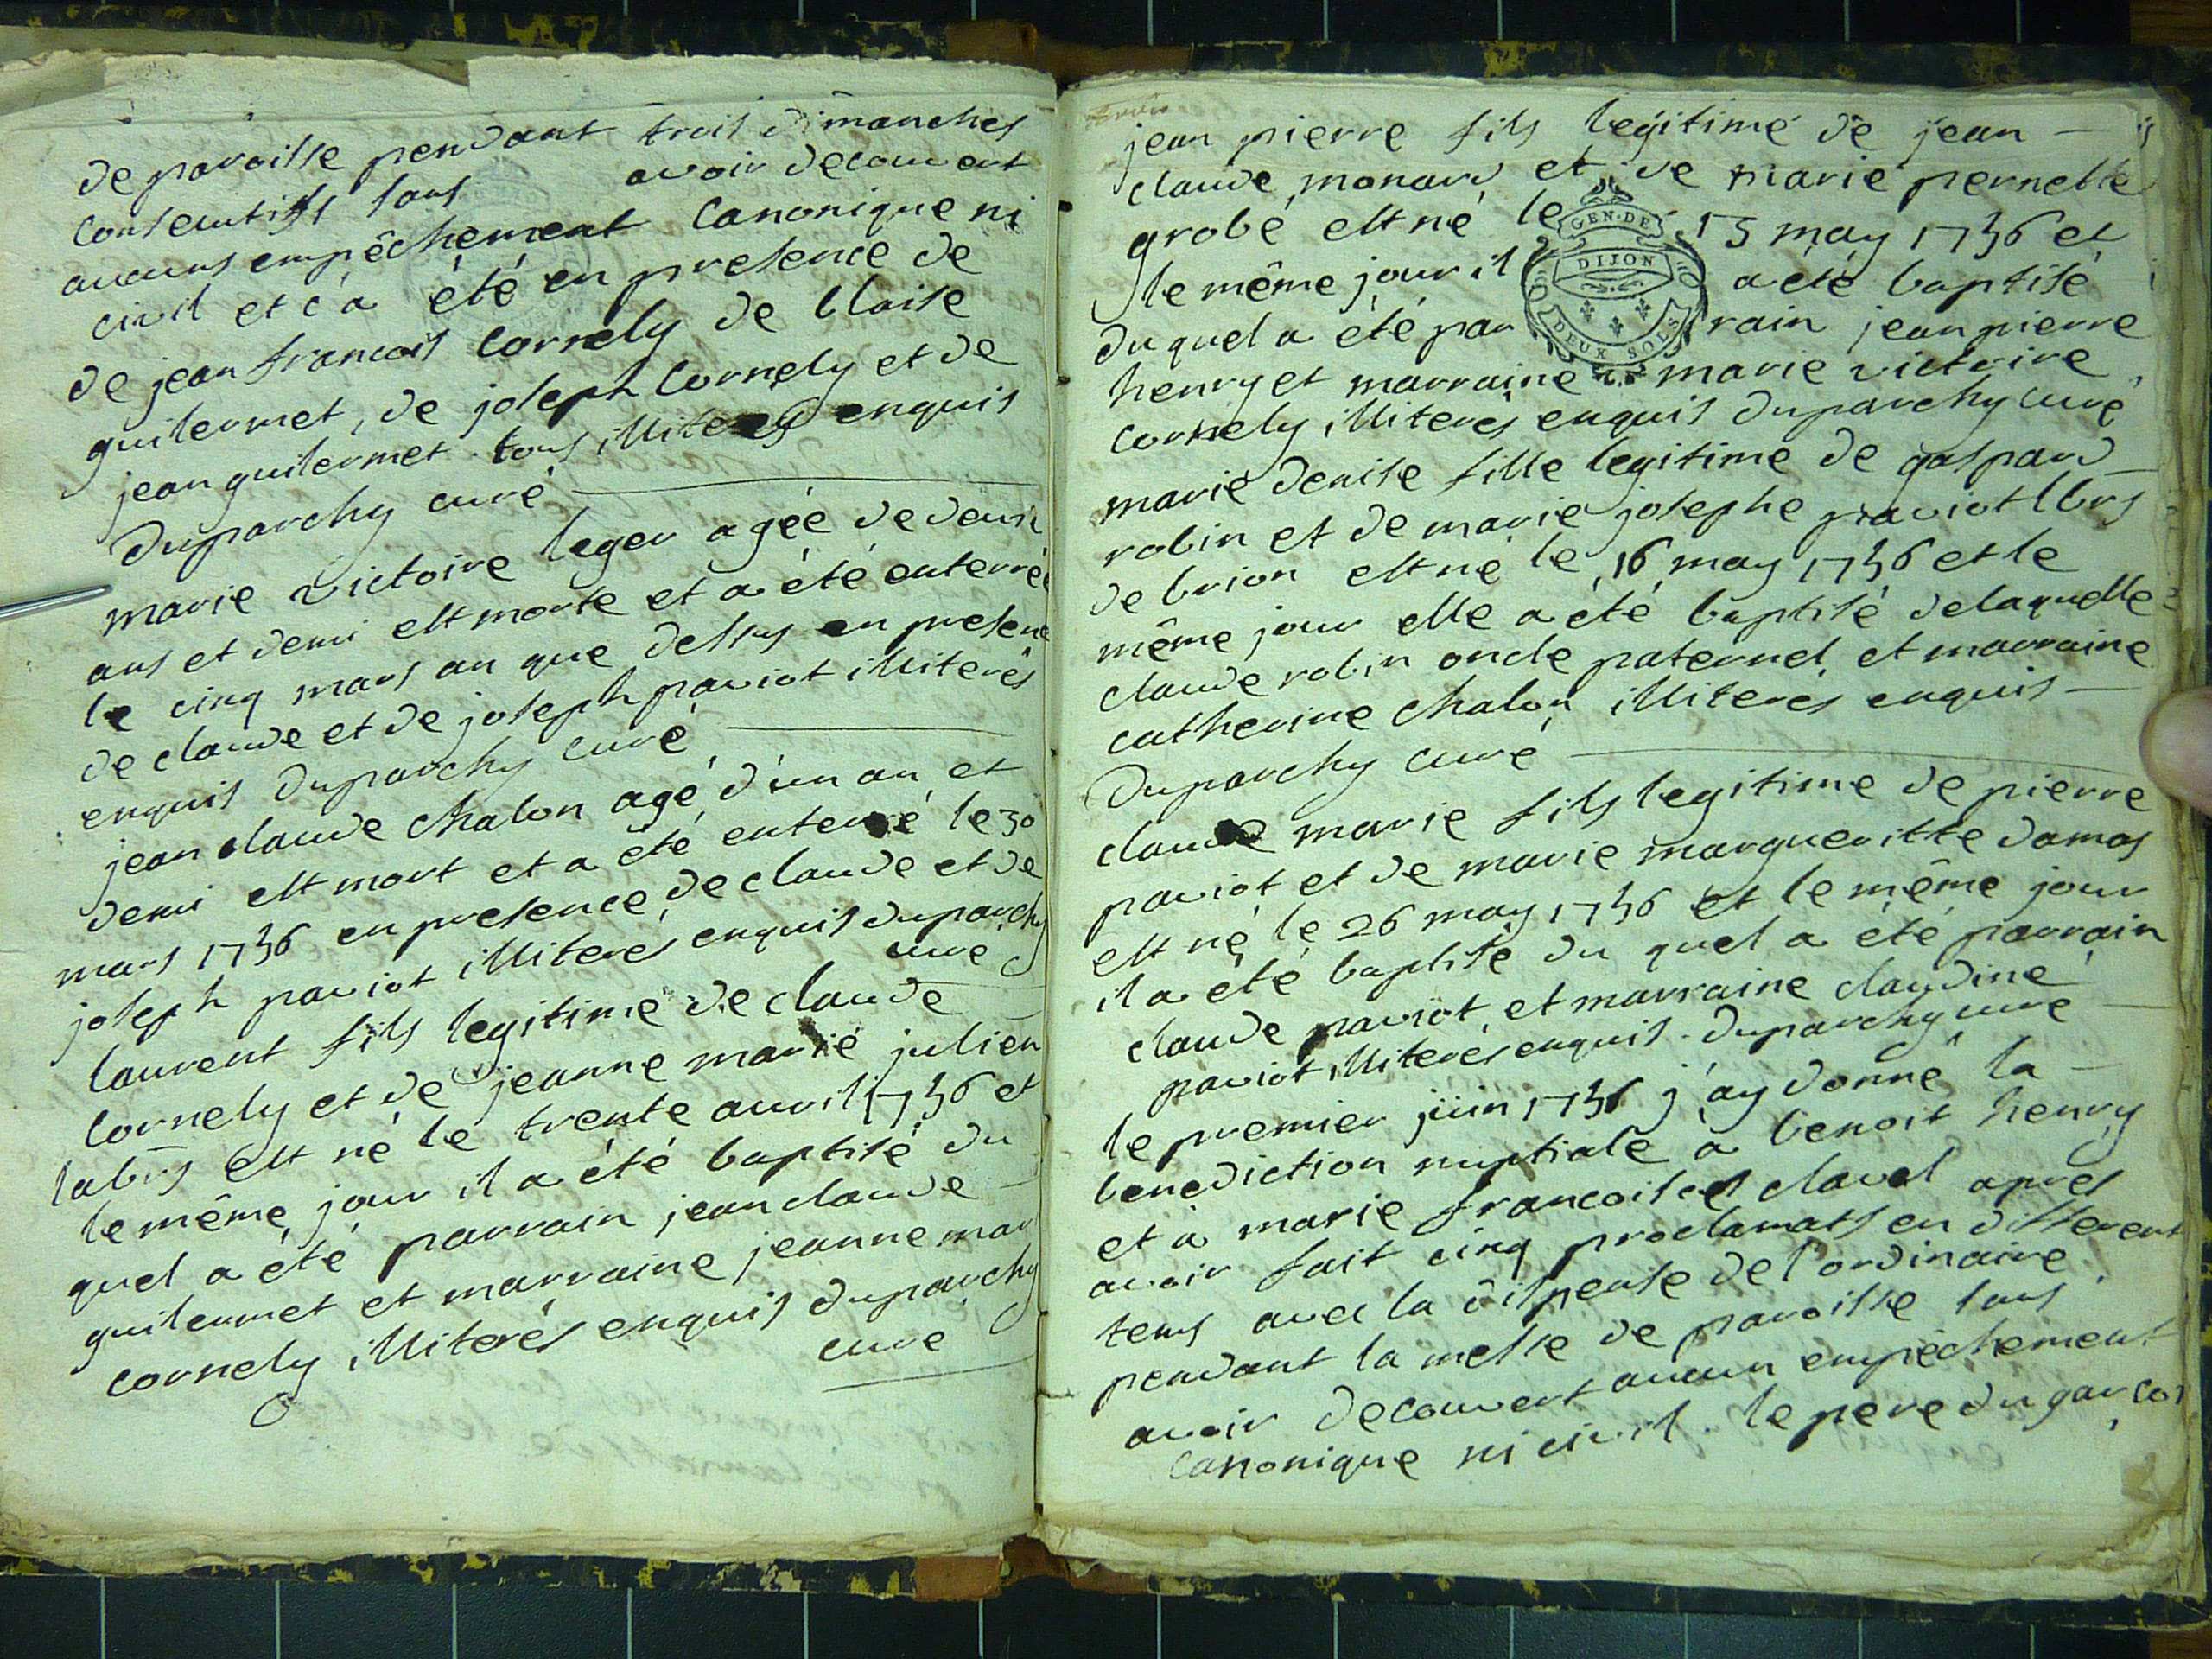 de paroisse pendant trois dimanches
consecutifs sans avoir decouvert
aucuns empêchement canonique ni
civil et c'a été en presence de
de jean francois Cornely de blaise
guilermet, de joseph Cornely et de
jean guilermet tous illiterés enquis
Duparchy curé
marie victoire leger agée de deux
ans et demi est morte et a été enterrée
le cinq mars an que dessus en presence
de claude et de joseph paviot illiterés
enquis Duparchy curé
jean claude chalon agé d'un an et
demi est mort et a été enterré le 30
mars 1736 en presence de claude et de
joseph paviot illiterés enquis duparchy
curé
laurent fils legitime de claude
Cornely et de jeanne marie julien
est né le trente avril 1736 et
le même jour il a été baptisé du
quel a été parrain jean claude
guilermet et marraine jeanne mar
cornely illiterés enquis duparchy
curé
jean pierre fils legitime de jean
claude monard et de marie pernette
grobé est né le 15 may 1736 et
le même jour il a été baptisé
du quel a été parrain jean pierre
henry et marraine marie victoire
cornely illiterés enquis duparchy curé
GEN·DE
DIJON
DEUX SOLS
marie denise fille legitime de gaspard
robin et de marie josephe paviot
de brion est né le 16 may 1736 et le
même jour elle a été baptisé de laquelle
claude robin oncle paternel et marraine
catherine chalon illiterés enquis
Duparchy curé
claude marie fils legitime de pierre
paviot et de marie margueritte damas
est né le 26 may 1736 et le même jour
il a été baptisé du quel a été parrain
claude paviot et marraine claudine
paviot illiterés enquis duparchy curé
le premier juin 1736 j'ay donné la
benediction nuptiale a benoit henry
et a marie francoise clavel apres
avoir fait cinq proclamats en different
tems avec la dispense de l'ordinaire
pendant la messe de paroisse sans
avoir decouvert aucun empêchement
canonique ni civil. le pere du garcon